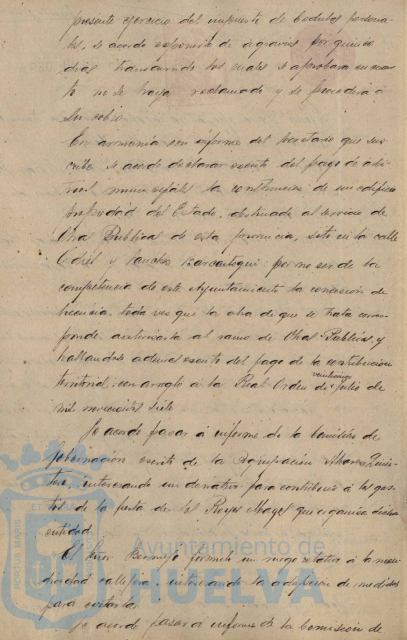 presente ejercicio del impuesto de Cedulas persona-
les, se acordó exponerlo de agravios por quince
dias transcurrido los cuales se aprobara en cuan-
to no se haya reclamado y se procederá á
su cobro.
En armonia con informe del Secretario que sus-
cribe se acordó declarar exento del pago de arbi-
trios municipales la construccion de un edificio
propiedad del Estado, destinado al servicio de
Obras Publicas de esta provincia, sito en la calle
Odiel y Sanchez Barcaiztegui por no ser de la
competencia de este Ayuntamiento la concesion de
licencia, toda vez que la obra de que se trata corres-
ponde autorizarla al ramo de Obras Publicas, y
hallandose ademas exento del pago de la contribucion
territorial con arreglo á la Real Orden de veinticinco Julio de
mil novecientos siete
Se acordó pasar á informe de la Comisión de
Gobernacion escrito de la Agrupación Alvarez Quin-
tero, interesando un donativo para contribuir á los gas-
tos de la fiesta de los Reyes Magos que organiza dicha
entidad.
El Señor Bermejo formuló un ruego relativo á la
callejera, interesando la adopcion de medidas
para cortarla.
Se acordó pasar á informe de la Comisión de
PORTUS MARIS ET
Ayuntamiento de
HUELVA